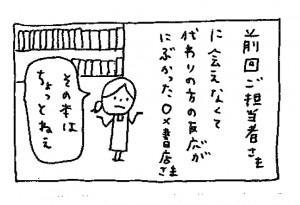 前回ご担当者さま
に会えなくて
代わりの方の反応が
にぶかった〇×書店さま
その本は
ちょっとねえ